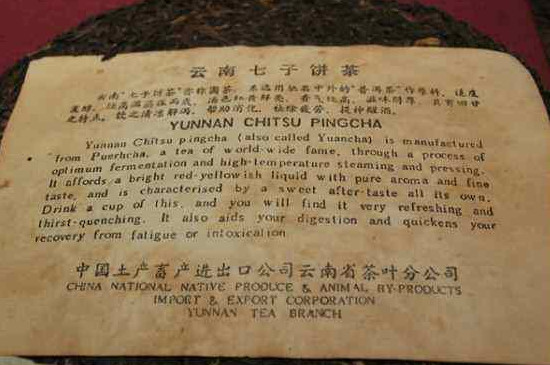 云南七子饼茶
云南"七子饼茶"亦称圆茶，系选用驰名中外的"普洱茶"作原料，适度
发酵，经高温蒸压而成，汤色红黄鲜亮，香气纯高，滋味醇厚，具有回甘
之特点，饮之清凉解渴，帮助消化，祛除疲劳，提神醒酒。
YUNNAN CHITSU PINGCHA
Yunnan Chitsu pingcha (also called Yuancha) is manufactured
from Puerhcha, a tea of world-wide fame, through a process of
optimum fermentation and high-temperature steaming and pressing.
It affords a bright red-yellowish liquid with pure aroma and fine
taste, and is characterised by a sweet after-taste all its own.
Drink a cup of this, and you will find it very refreshing and
thirst-quenching. It also aids your digestion and quickens your
recovery from fatigue or intoxication
中国土产畜产进出口公司云南省茶叶分公司
CHINA NATIONAL NATIVE PRODUCE & ANIMAL BY-PRODUCTS
IMPORT & EXPORT CORPORATION
YUNNAN TEA BRANCH